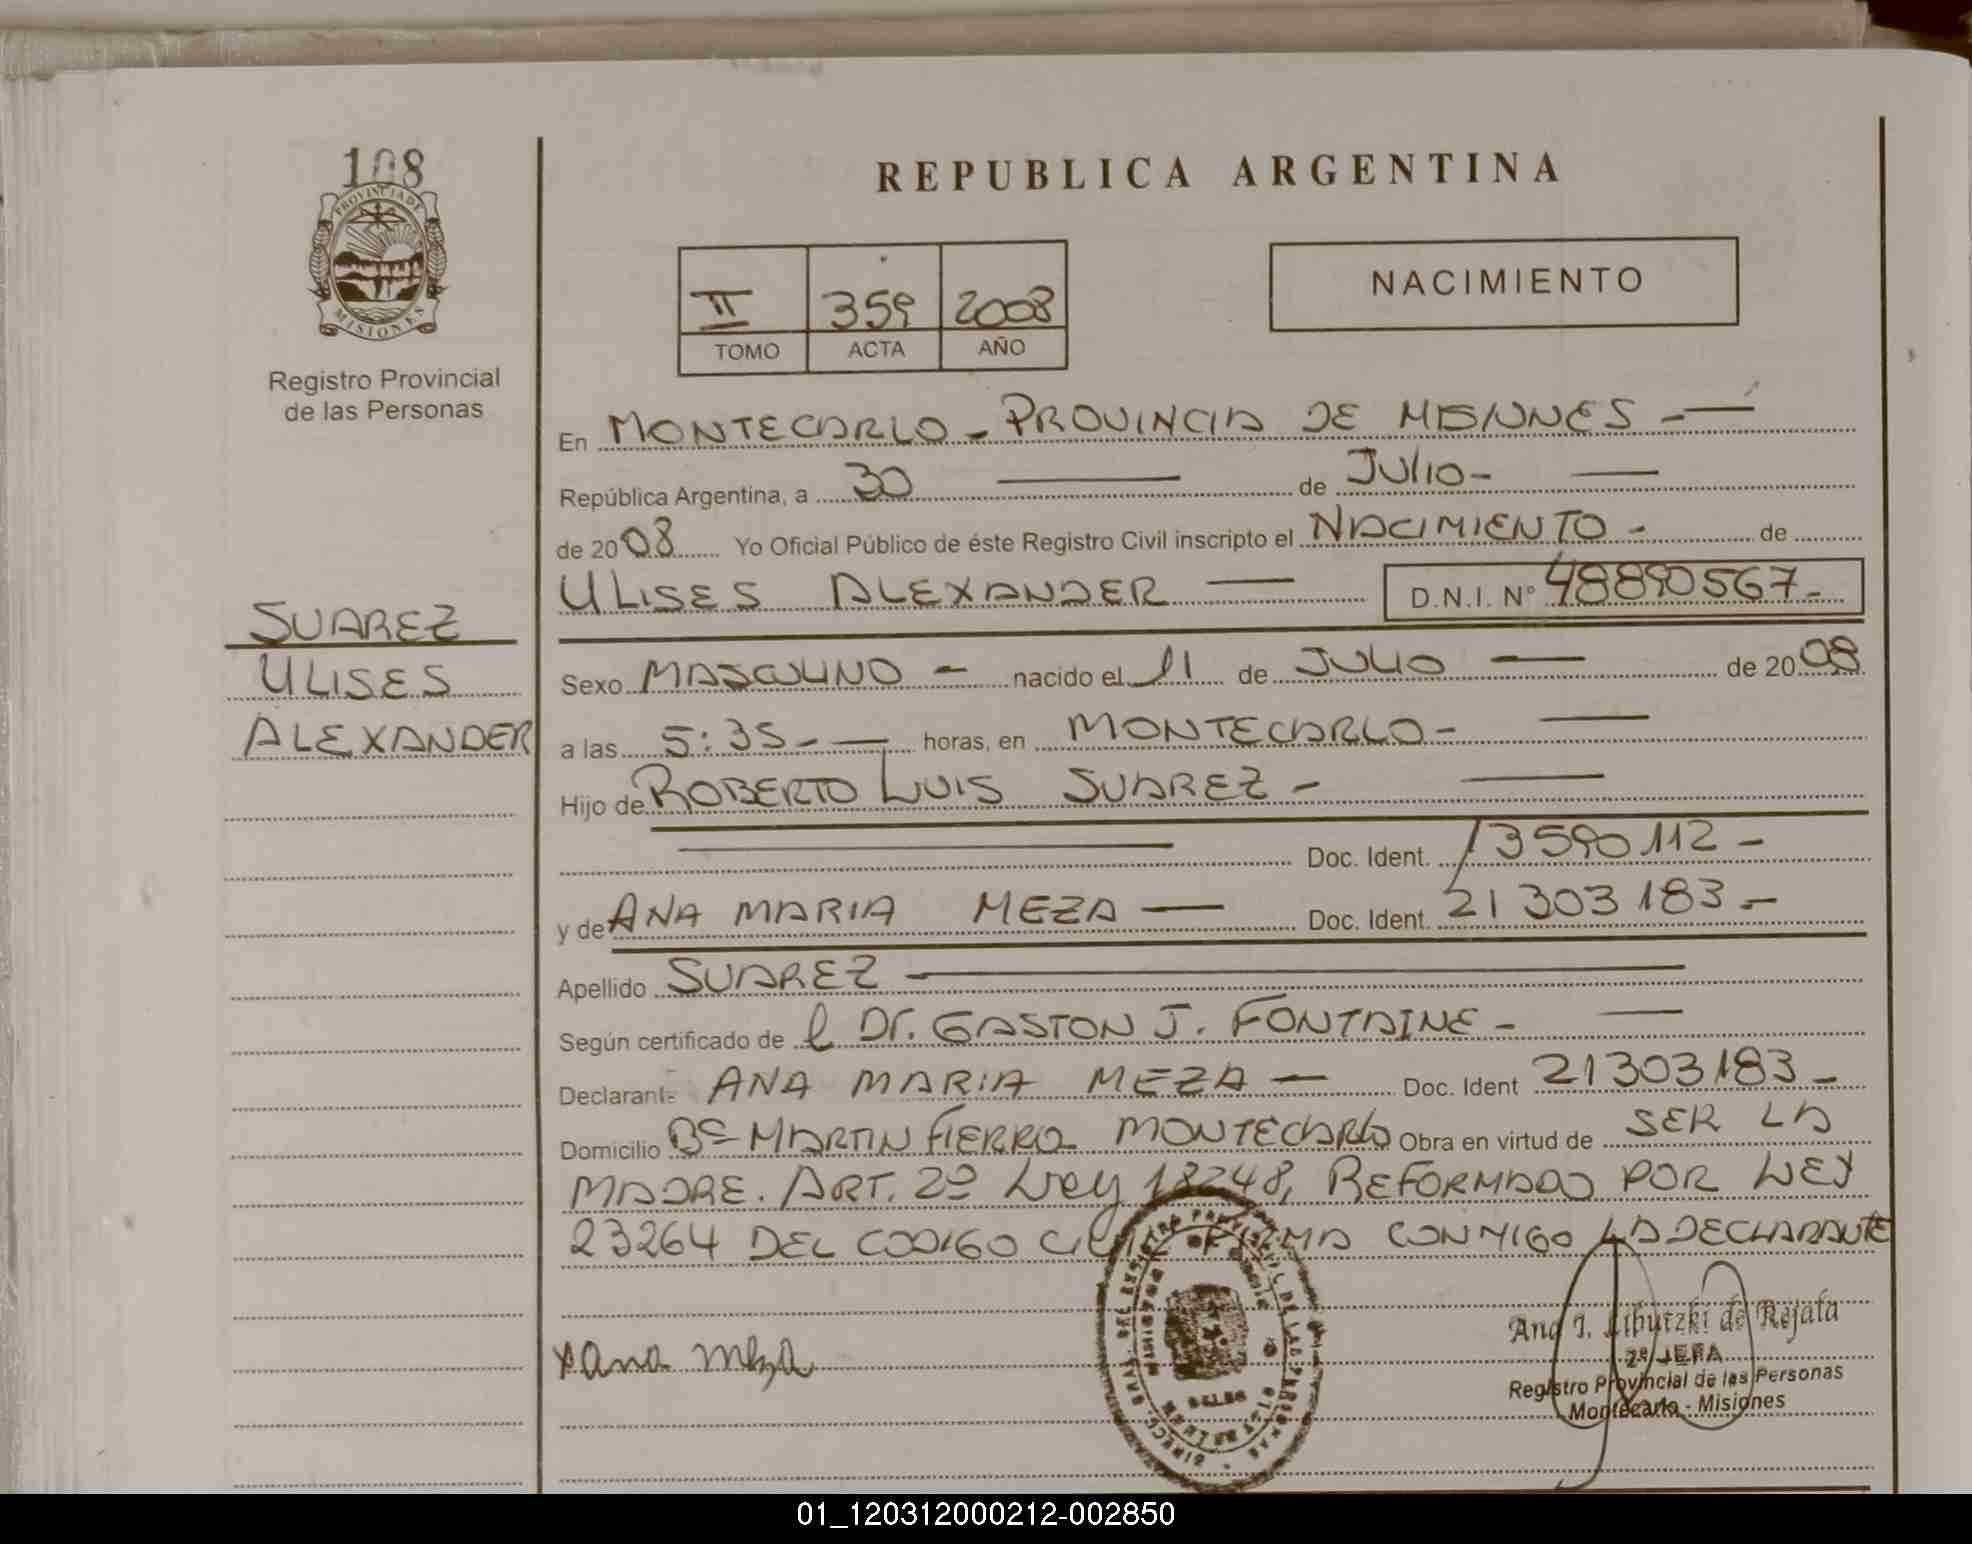 108
PROVINCIA DE
MISIONES
Registro Provincial
de las Personas
SUAREZ
ULISES
ALEXANDER
REPUBLICA ARGENTINA
II 359 2008
TOMO ACTA AÑO
NACIMIENTO
En MONTECARLO - PROVINCIA DE MISIONES -
República Argentina, a 30 de JULIO -
de 2008 Yo Oficial Público de éste Registro Civil inscripto el NACIMIENTO - de
ULISES ALEXANDER D.N.I. Nº 48890567 -
Sexo MASCULINO - nacido el 11 de JULIO de 2008
a las 5:35 - horas, en MONTECARLO -
Hijo de ROBERTO LUIS SUAREZ -
Doc. Ident. 13590112 -
y de ANA MARIA MEZA Doc. Ident. 21303183 -
Apellido SUAREZ
Según certificado de l Dr. GASTON J. FONTAINE -
Declarante ANA MARIA MEZA - Doc. Ident 21303183 -
Domicilio Bº MARTIN FIERRO MONTECARLO Obra en virtud de SER LA
MADRE. ART. 2º Ley 18248, REFORMADO POR LEY
23264 DEL CODIGO CIVIL FIRMA CONMIGO LA DECLARANTE
x Ana Meza
Ana I. de Rejala
2ª JEFA
Registro Provincial de las Personas
Montecarlo - Misiones
01_120312000212-002850